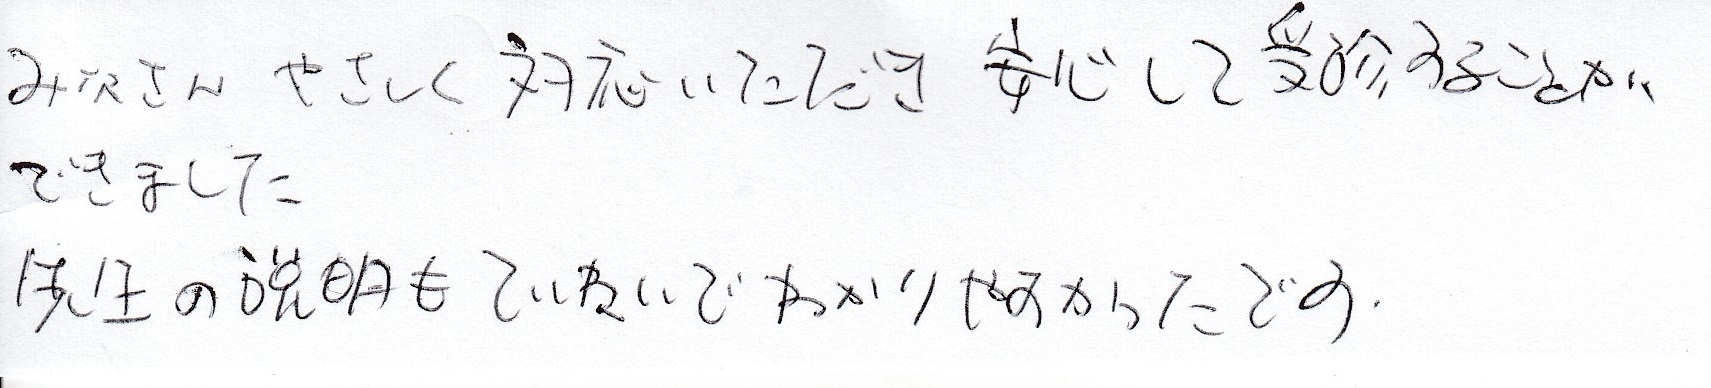 みなさん やさしく 対応いただき 安心して受診することが
できました
先生の説明もていねいでわかりやすかったです.